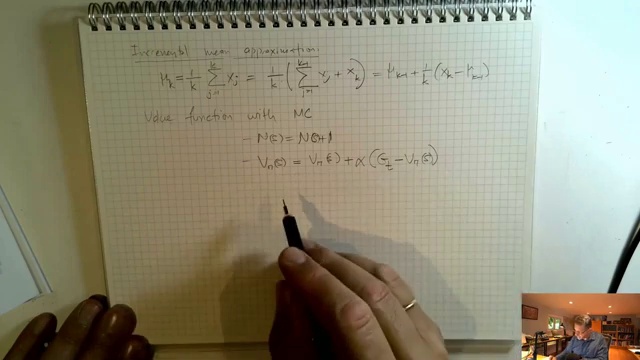 Incremental mean approximation:
μ_k = 1/k ∑_{j=1}^{k} x_j = 1/k (∑_{j=1}^{k-1} x_j + x_k) = μ_{k-1} + 1/k (x_k - μ_{k-1})
Value function with MC
- N(s) = N(s)+1
- V_π(s) = V_π(s) + α (G_t - V_π(s))